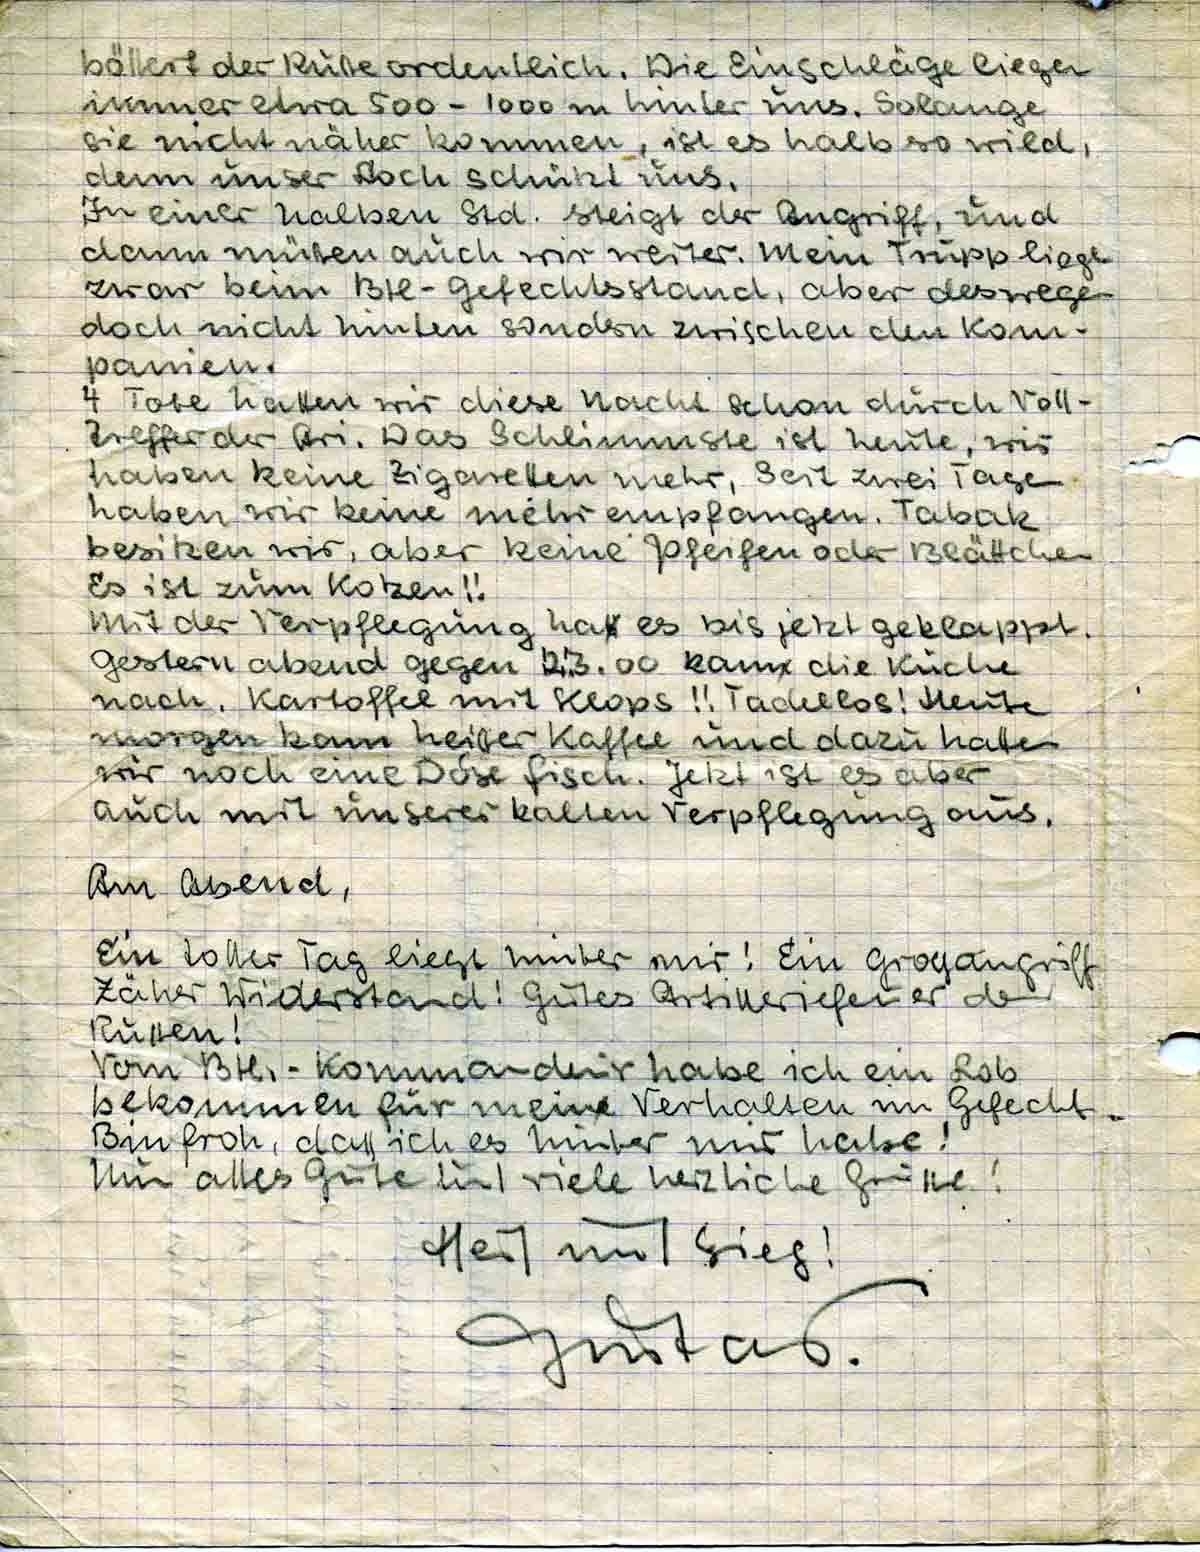 böllert der Russe ordentlich. Die Einschläge liegen
immer etwa 500 - 1000 m hinter uns. Solange
sie nicht näher kommen, ist es halb so wild,
denn unser Loch schützt uns.
In einer halben Std. steigt der Angriff, und
dann müssen auch wir weiter. Mein Trupp liegt
zwar beim Btl-Gefechtsstand, aber deswegen
doch nicht hinten sondern zwischen den Kom-
panien.
4 Tote hatten wir diese Nacht schon durch Voll-
treffer der Ari. Das Schlimmste ist heute, wir
haben keine Zigaretten mehr, Seit zwei Tage
haben wir keine mehr empfangen. Tabak
besitzen wir, aber keine Pfeifen oder Blättchen
Es ist zum Kotzen!!
Mit der Verpflegung hat es bis jetzt geklappt.
Gestern abend gegen 23.00 kam die Küche
nach. Kartoffel mit Klops!! Tadellos! Heute
morgen kam heisser Kaffee und dazu hatten
wir noch eine Dose Fisch. Jetzt ist es aber
auch mit unserer kalten Verpflegung aus.
Am Abend,
Ein toller Tag liegt hinter mir! Ein Großangriff
Zäher Widerstand! Gutes Artilleriefeuer der
Russen!
Vom Btl.-Kommandeur habe ich ein Lob
bekommen für mein Verhalten im Gefecht.
Bin froh, dass ich es hinter mir habe!
Nun alles Gute und viele herzliche Grüsse!
Heil und Sieg!
Gustav.